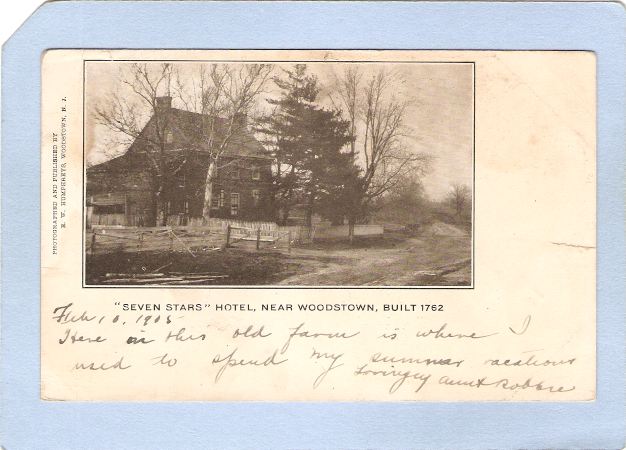 PHOTOGRAPHED AND PUBLISHED BY
E. W. HUMPHREYS, WOODSTOWN, N. J.
"SEVEN STARS" HOTEL, NEAR WOODSTOWN, BUILT 1762
Feb 10, 1905
Here in this old farm is where I
used to spend my summer vacations
Lovingly Aunt